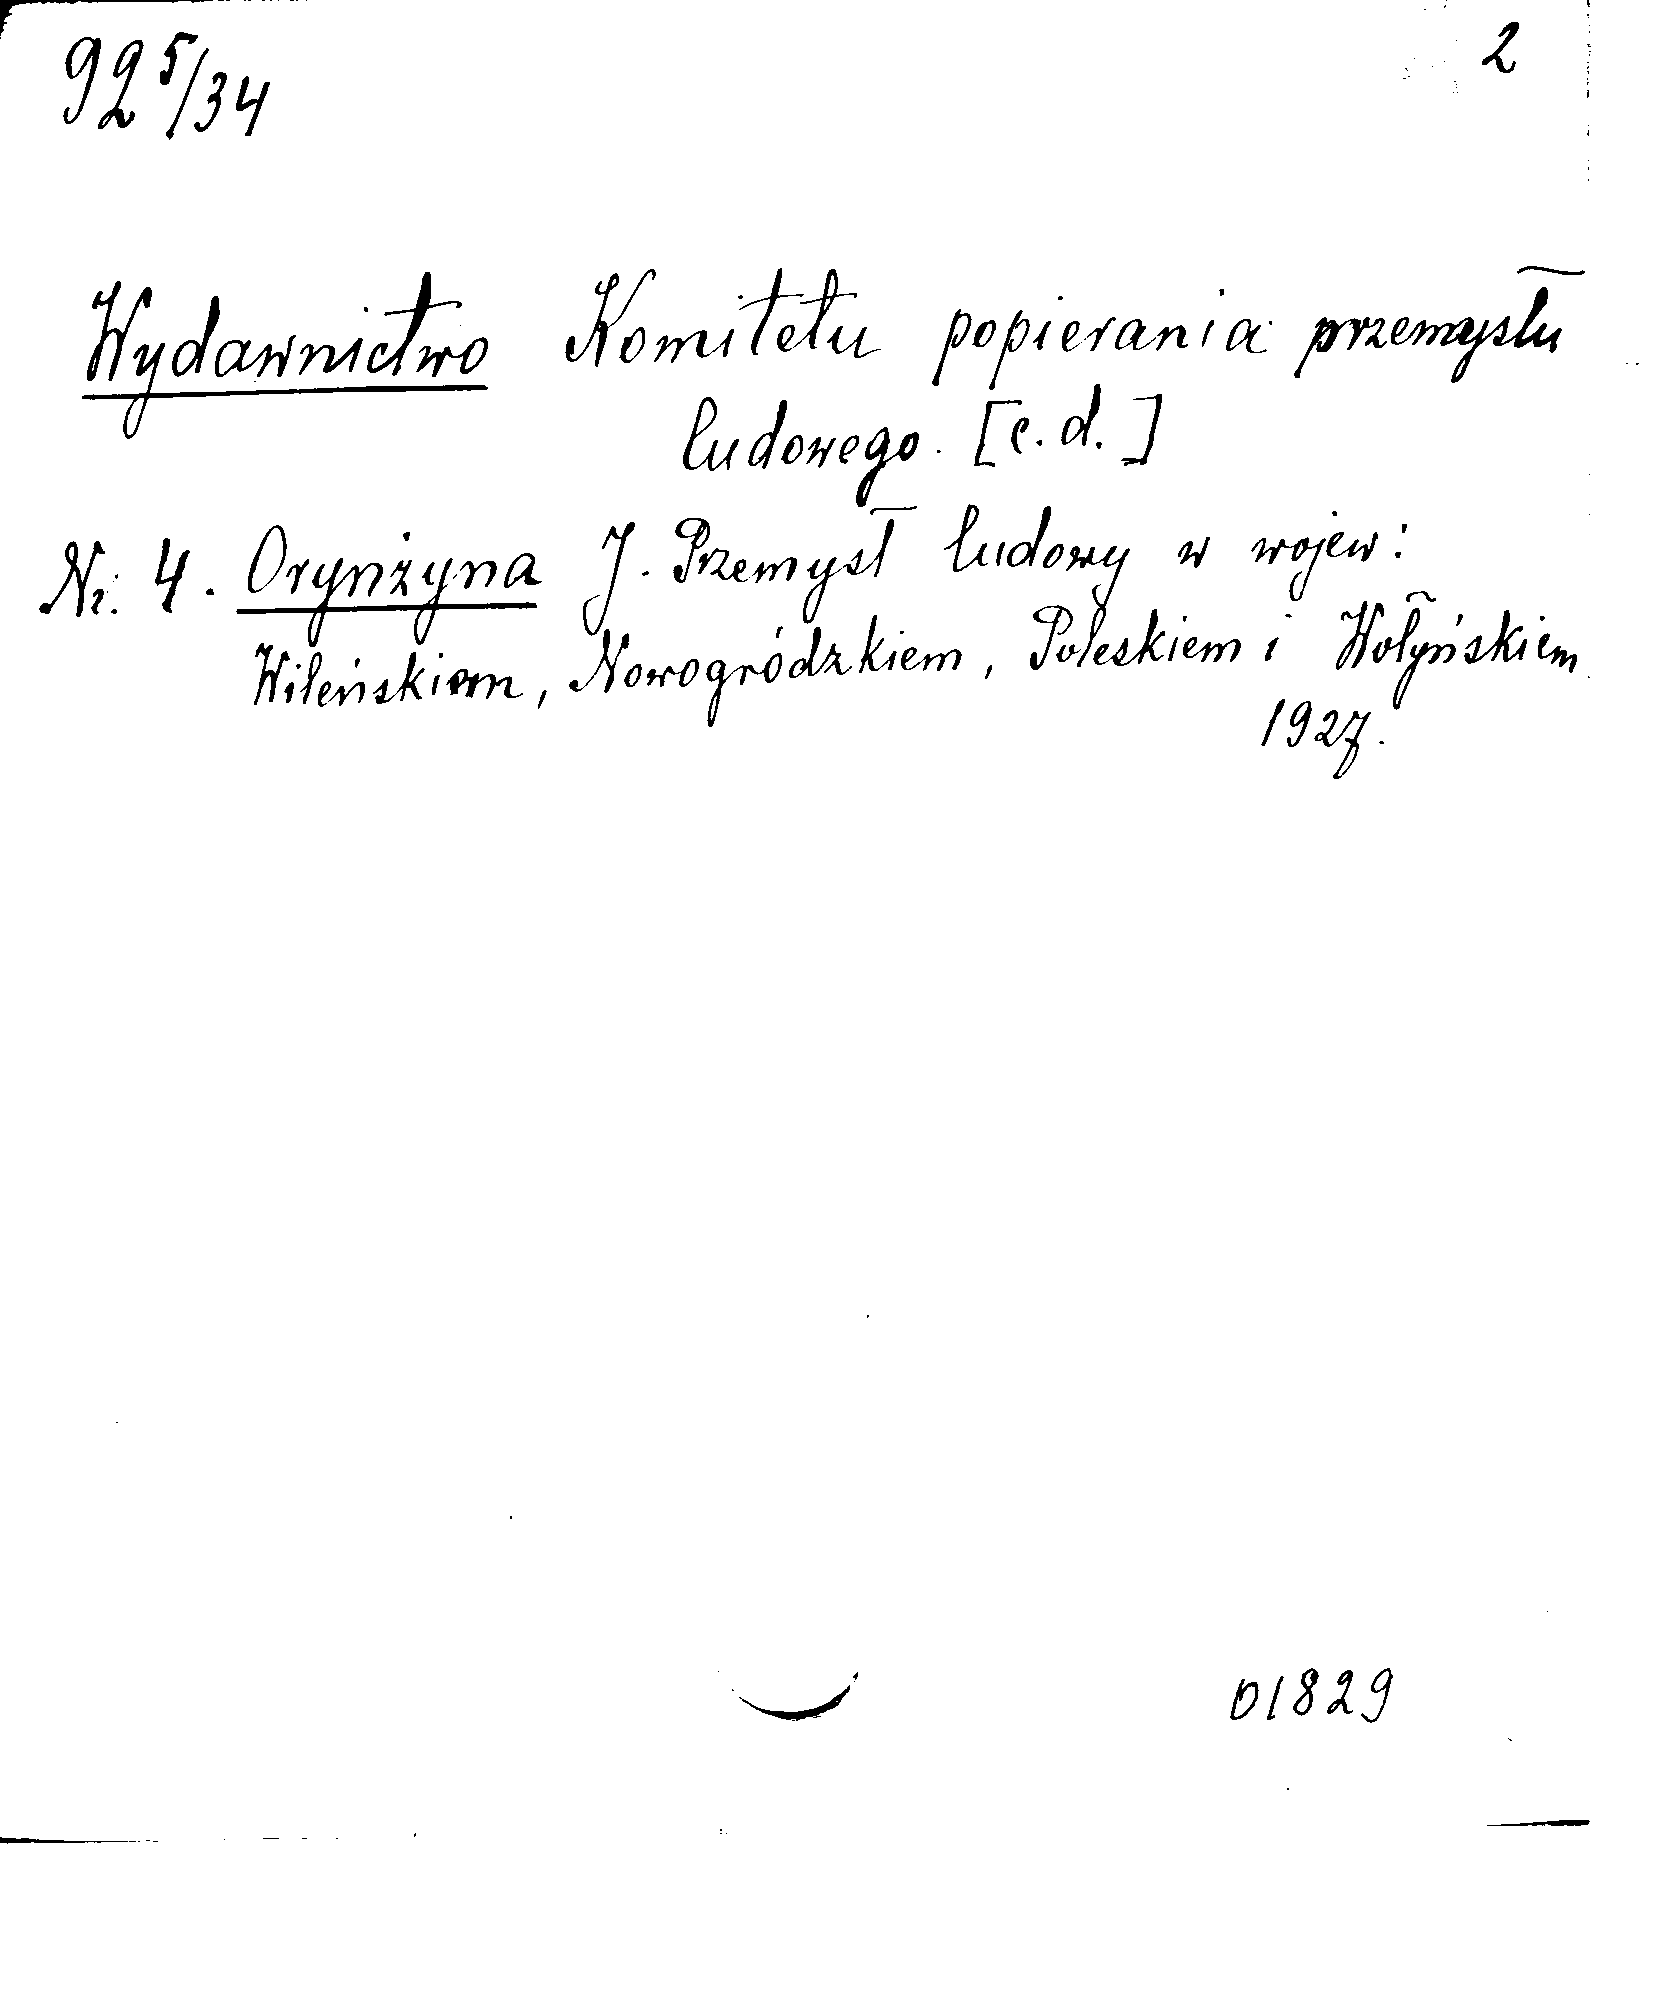 92 5/34
2
Wydawnictwo Komitetu popierania przemysłu
ludowego. [c.d.]
Nr. 4. Orynżyna J. Przemysł ludowy w wojew:
Wileńskiem, Nowogródzkiem, Poleskiem i Wołyńskiem
1927.
01829